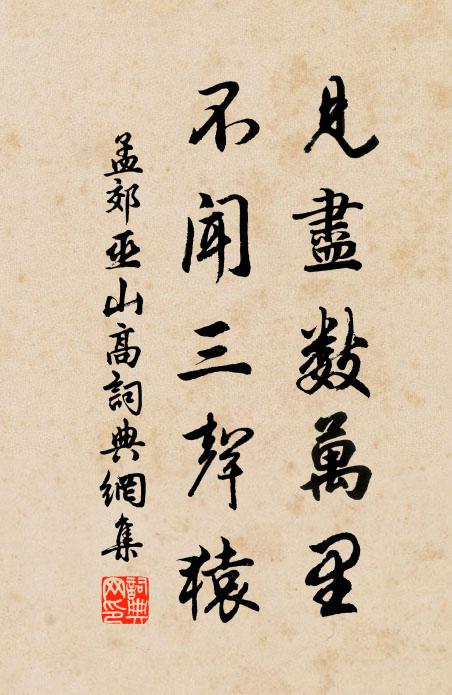 見盡數萬里
不聞三聲猿
孟郊巫山高詞典網集
詞典
网印